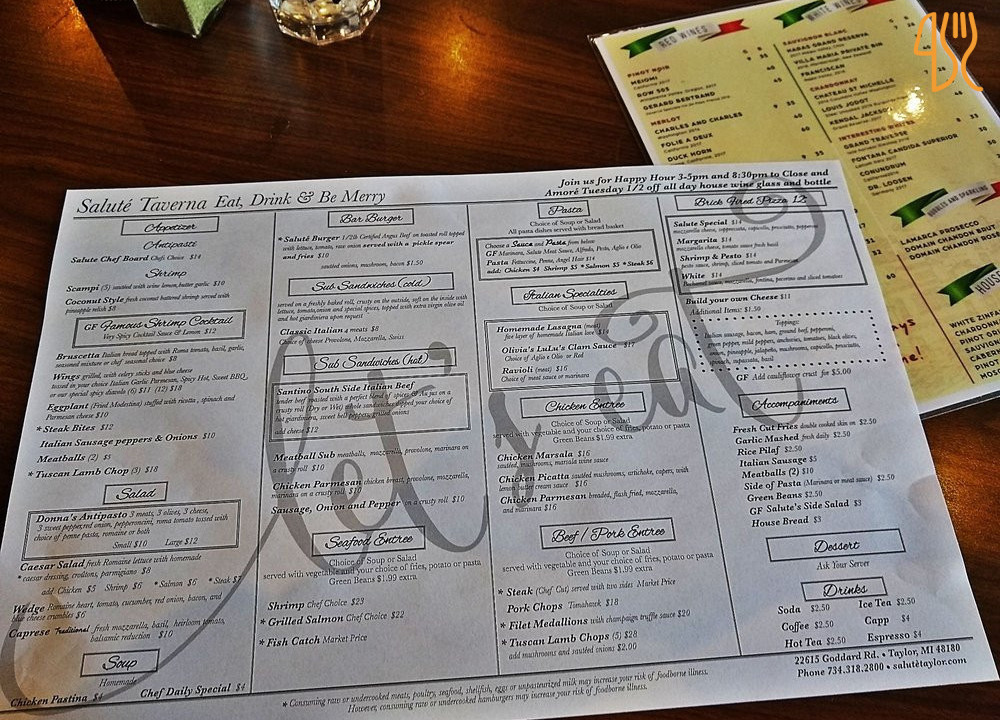 Saluté Taverna Eat, Drink & Be Merry
Join us for Happy Hour 3-5pm and 8:30pm to Close and
Amoré Tuesday 1/2 off all day house wine glass and bottle
Appetizer
Antipasti
Salute Chef Board Chefs Choice $14
Shrimp
Scampi (5) sauteed with wine lemon,butter garlic $10
Coconut Style fresh coconut battered shrimp served with
pineapple relish $8
GF Famous Shrimp Cocktail
Very Spicy Cocktail Sauce & Lemon $12
Bruscetta Italian bread topped with Roma tomato, basil, garlic,
seasoned mixture or chef seasonal choice $8
Wings grilled, with celery sticks and blue cheese
tossed in your choice Italian Garlic Parmesan, Spicy Hot, Sweet BBQ
or our special spicy diavolo (6) $11 (12) $18
Eggplant (Fried Modestina) stuffed with ricotta , spinach and
Parmesan cheese $10
* Steak Bites $12
Italian Sausage peppers & Onions $10
Meatballs (2) $5
* Tuscan Lamb Chop (3) $18
Salad
Donna's Antipasto 3 meats, 3 olives, 3 cheese,
3 sweet pepper,red onion, pepperoncini, roma tomato tossed with
choice of penne pasta, romaine or both
Small $10 Large $12
Caesar Salad fresh Romaine lettuce with homemade
* caesar dressing, croutons, parmigiano $8
add Chicken $5 Shrimp $6 *Salmon $6 * Steak $7
Wedge Romaine heart, tomato, cucumber, red onion, bacon, and
blue cheese crumbles $6
Caprese Traditional fresh mozzarella, basil, heirloom tomato,
balsamic reduction $10
Soup
Homemade
Chicken Pastina $4 Chef Daily Special $4
Bar Burger
* Saluté Burger 1/2lb Certified Angus Beef on toasted roll topped
with lettuce, tomato, raw onion served with a pickle spear
and fries $10
sauteed onions, mushroom, bacon $1.50
Sub Sandwiches (cold)
served on a freshly baked roll, crusty on the outside, soft on the inside with
lettuce, tomato,onion and special spices, topped with extra virgin olive oil
and hot giardiniera upon request
Classic Italian 4 meats $8
Choice of cheese Provolone, Mozzarella, Swiss
Sub Sandwiches (hot)
Santino South Side Italian Beef
tender beef roasted with a perfect blend of spices & Au jus on a
crusty roll (Dry or Wet) whole sandwich dipped your choice of
hot giardiniera, sweet bell peppers,grilled onions
add cheese $12
Meatball Sub meatballs, mozzarella, provolone, marinara on
a crusty roll $10
Chicken Parmesan chicken breast, provolone, mozzarella,
marinara on a crusty roll $10
Sausage, Onion and Pepper on a crusty roll $10
Seafood Entree
Choice of Soup or Salad
served with vegetable and your choice of fries, potato or pasta
Green Beans $1.99 extra
Shrimp Chef Choice $23
* Grilled Salmon Chef Choice $22
* Fish Catch Market Price
Pasta
Choice of Soup or Salad
All pasta dishes served with bread basket
Choose a Sauce and Pasta from below
GF Marinara, Salute Meat Sauce, Alfredo, Pesto, Aglio e Olio
Pasta Fettuccine, Penne, Angel Hair $14
add: Chicken $4 Shrimp $5 * Salmon $5 *Steak $6
Italian Specialties
Choice of Soup or Salad
Homemade Lasagna (meat)
five layer of homemade Italian love $19
Olivia's LuLu's Clam Sauce $17
Choice of Aglio e Olio or Red
Ravioli (meat) $16
Choice of meat sauce or marinara
Chicken Entree
Choice of Soup or Salad
served with vegetable and your choice of fries, potato or pasta
Green Beans $1.99 extra
Chicken Marsala $16
sauteed, mushrooms, marsala wine sauce
Chicken Picatta sauteed mushrooms, artichoke, capers, with
lemon butter cream sauce $16
Chicken Parmesan breaded, flash fried, mozzarella,
and marinara $16
Beef / Pork Entree
Choice of Soup or Salad
served with vegetable and your choice of fries, potato or pasta
Green Beans $1.99 extra
* Steak (Chef Cut) served with two sides Market Price
Pork Chops Timahatek $18
* Filet Medallions with champaign truffle sauce $20
* Tuscan Lamb Chops (5) $28
add mushrooms and sautéed onions $2.00
Brick Fired Pizza 12"
Salute Special $14
mozzarella cheese, soppressata, capicolla, prosciutto, pepperoni
Margarita $14
mozzarella cheese, tomato sauce fresh basil
Shrimp & Pesto $14
pesto sauce, shrimp, sliced tomato and Parmesan
White $14
mozzarella, fontina, pecorino and sliced tomatoes
Build your own Cheese $11
Additional Items: $1.50
Toppings:
Italian sausage, bacon, ham, ground beef, pepperoni,
green pepper, mild pepper, anchovies, tomatoes, black olives,
onion, pineapple, jalapeño, mushrooms, capicollo, prosciutto,
spinach, supressata, basil
GF Add cauliflower crust for $5.00
Accompaniments
Fresh Cut Fries double cooked skin on $2.50
Garlic Mashed fresh daily $2.50
Rice Pilaf $2.50
Italian Sausage $5
Meatballs (2) $10
Side of Pasta (Marinara or meat sauce) $2.50
Green Beans $2.50
GF Salute's Side Salad $3
House Bread $3
Dessert
Ask Your Server
Drinks
Soda $2.50 Ice Tea $2.50
Coffee $2.50 Capp $4
Hot Tea $2.50 Espresso $4
22615 Goddard Rd. • Taylor, MI 48180
Phone 734.318.2800 • salutétaylor.com
* Consuming raw or undercooked meats, poultry, seafood, shellfish, eggs or unpasteurized milk may increase your risk of foodborne illness.
However, consuming raw or undercooked hamburgers may increase your risk of foodborne illness.
Let's Eat
RED WINES
PINOT NOIR
MEIOMI
ROW 503
GERARD BERTRAND
MERLOT
CHARLES AND CHARLES
FOLIE A DEUX
DUCK HORN
WHITE WINES
SAUVIGNON BLANC
HARAS GRAND RESERVA
VILLA MARIA PRIVATE BIN
FRANCISCAN
CHARDONNAY
CHATEAU ST MICHELLE
LOUIS JODOT
KENDAL JACKSON
INTERESTING WHITES
GRAND TRAVERSE
FONTANA CANDIDA SUPERIOR
CONUNDRUM
DR. LOOSEN
BUBBLES AND SPARKLING
LAMARCA PROSECCO
DOMAIN CHANDON BRUT
DOMAIN CHANDON ROSE
HOUSE
WHITE ZINFA
PINOT
SAUV
CHAR
PINOT
CABER
MOSC